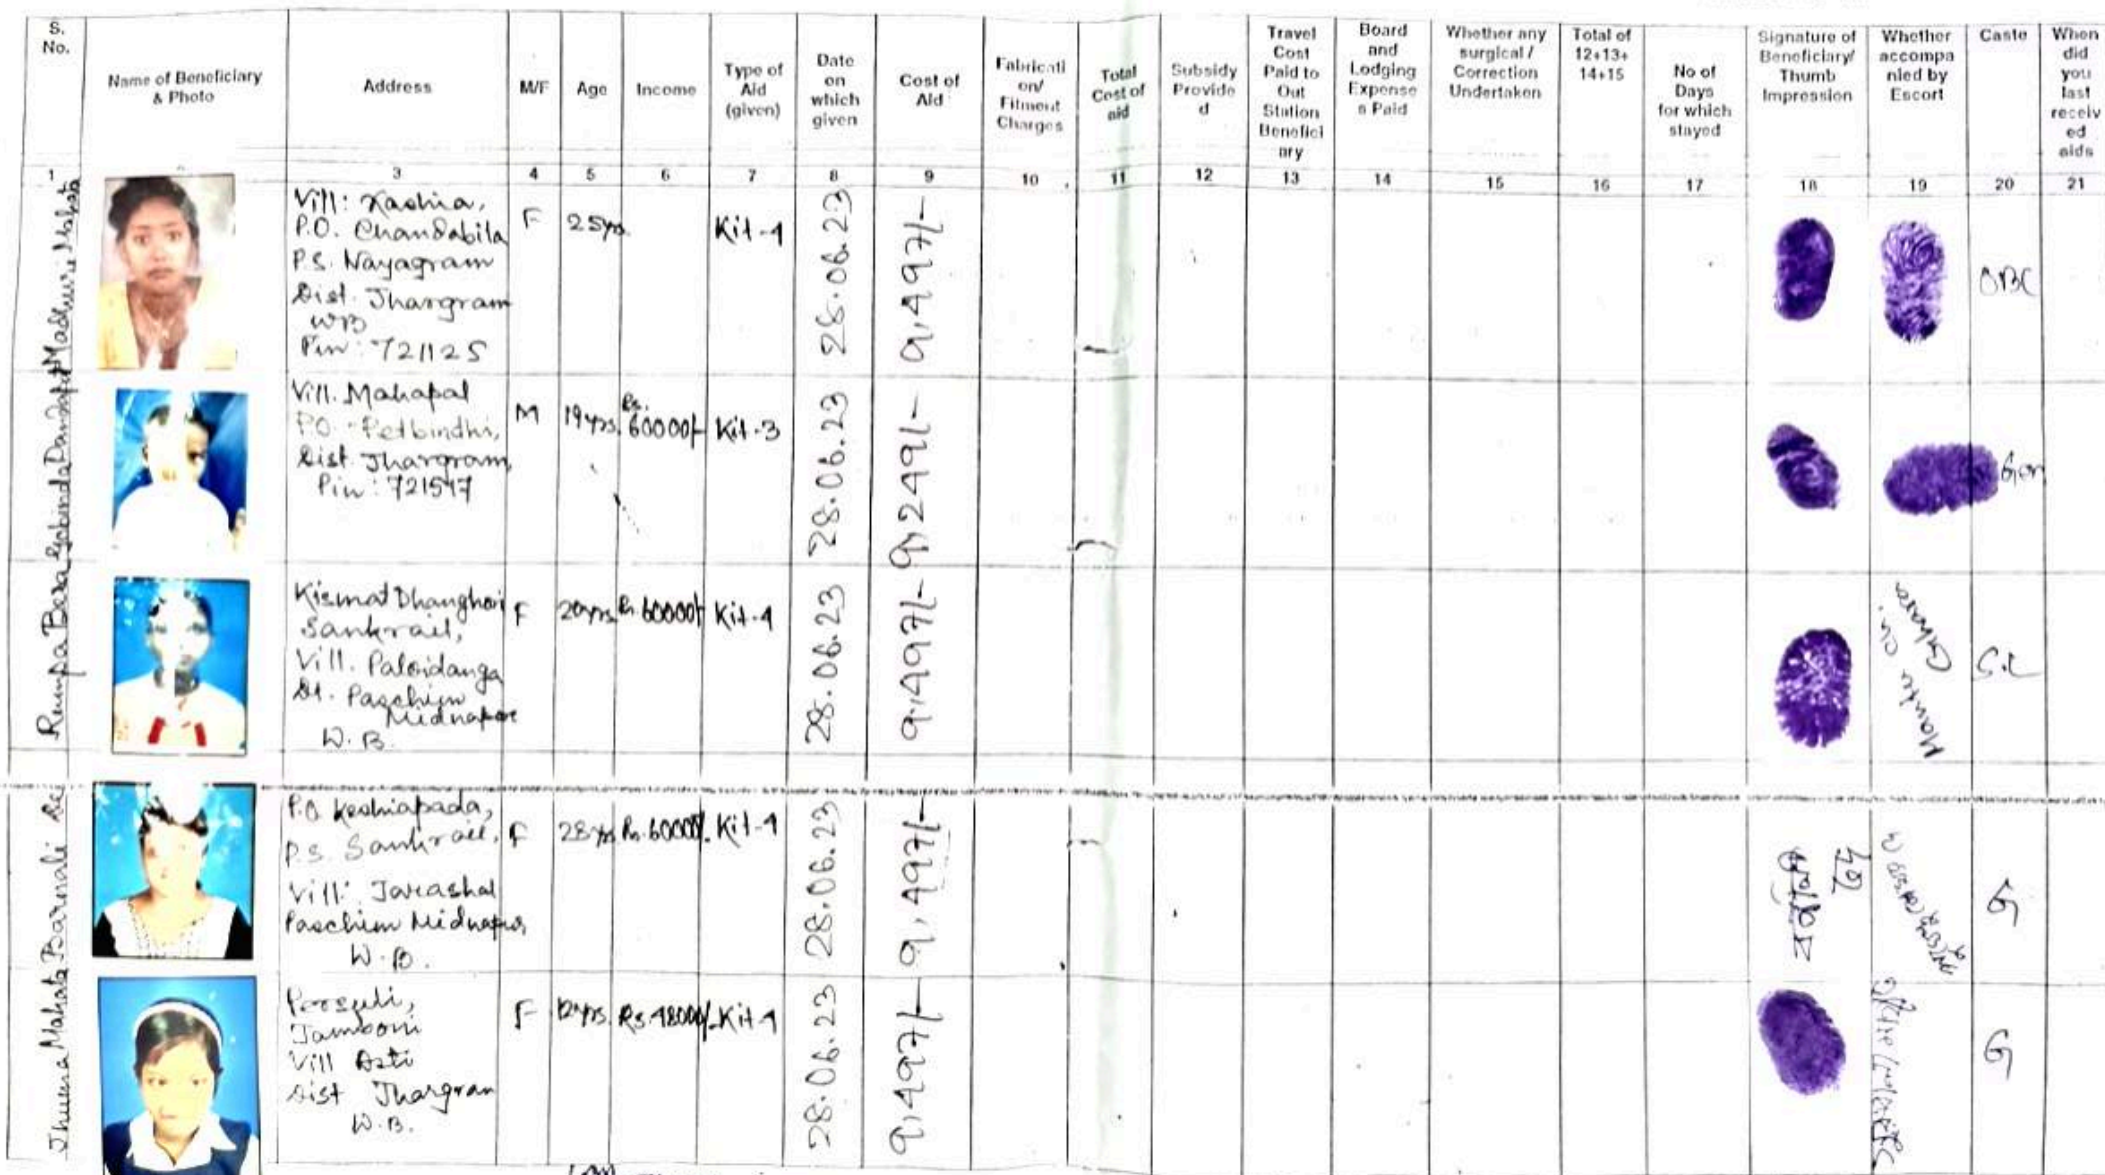 S. No.
Name of Beneficiary & Photo
Address
M/F
Age
Income
Type of Aid (given)
Date on which given
Cost of Aid
Fabricati on/ Fitment Charges
Total Cost of aid
Subsidy Provide d
Travel Cost Paid to Out Station Benefici ary
Board and Lodging Expense s Paid
Whether any surgical / Correction Undertaken
Total of 12+13+ 14+15
No of Days for which stayed
Signature of Beneficiary/ Thumb Impression
Whether accompa nied by Escort
Caste
When did you last receiv ed aids
1 3 4 5 6 7 8 9 10 11 12 13 14 15 16 17 18 19 20 21
Madhuri Mahata
Vill: Kashia,
P.O. Chandabila
P.S. Nayagram
Dist. Jhargram
WB
Pin: 721125
F
25yrs
Kit-4
28.06.23
9,497/-
OBC
Gobinda Dandapat
Vill. Mahapal
P.O. Petbindhi,
Dist. Jhargram,
Pin: 721517
M
19yrs.
Rs. 60000/-
Kit-3
28.06.23
9,249/-
Gen
Rumpa Bera
Kismat Dhanghori
Sankrail,
Vill. Paloidanga
Dt. Paschim
Midnapore
W.B.
F
20yrs
Rs. 60000/-
Kit-4
28.06.23
9,497/-
Barnali De
P.O. Keshiapada,
P.S. Sankrail,
Vill: Jarashal
Paschim Midnapur,
W.B.
F
28yrs
Rs. 60000/-
Kit-4
28.06.23
9,497/-
G
Jhuma Mahata
Parsuli,
Jamboni
Vill Asti
Dist Jhargram
W.B.
F
12yrs.
Rs. 48000/-
Kit-4
28.06.23
9,497/-
G